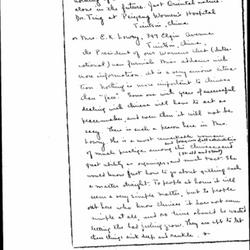 alone in the future. Just Oriental nature.
Dr. Ting at Peiyang Women's Hospital
Tientsin, China
Mrs. E.K. Lowry, 749 Elgin Avenue
Tientsin, China
the President of our Women's Club (Inter-
national) can furnish Miss Addams with
more information. It is a very serious situa-
tion. Nothing is more important to Chinese
than "face". Some one with years of successful
dealing with Chinese will have to act as
peacemaker, and even then it will not be
easy. There is such a person here in Mrs.
Lowry. She is a most remarkable woman
of much prestige among the Chinese
great ability as organizer, and much tact. She
would know just how to go about getting such
a matter straight. To people at home it will
seem a very simple matter, but to people
out here who know Chinese it has not seem
simple at all, and no time should be wasted
letting the bad feeling grow. They are apt to let
these things sink deep and rankle,